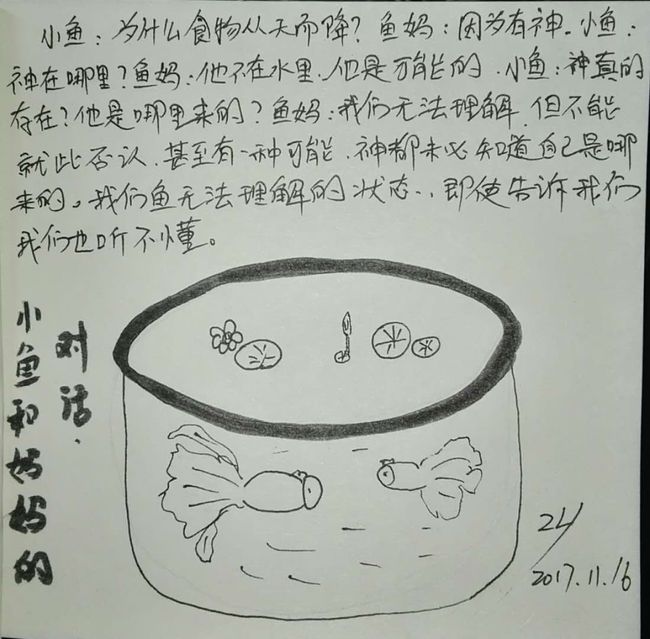 小鱼：为什么食物从天而降？鱼妈：因为有神。小鱼：
神在哪里？鱼妈：他不在水里．他是可能的．小鱼：神真的
存在？他是哪里来的？鱼妈：我们无法理解．但不能
就此否认．甚至有一种可能．神都未必知道自己是哪
来的。我们鱼无法理解的状态．．即使告诉我们
我们也听不懂。
小鱼和妈妈的
对话．
24
2017.11.16